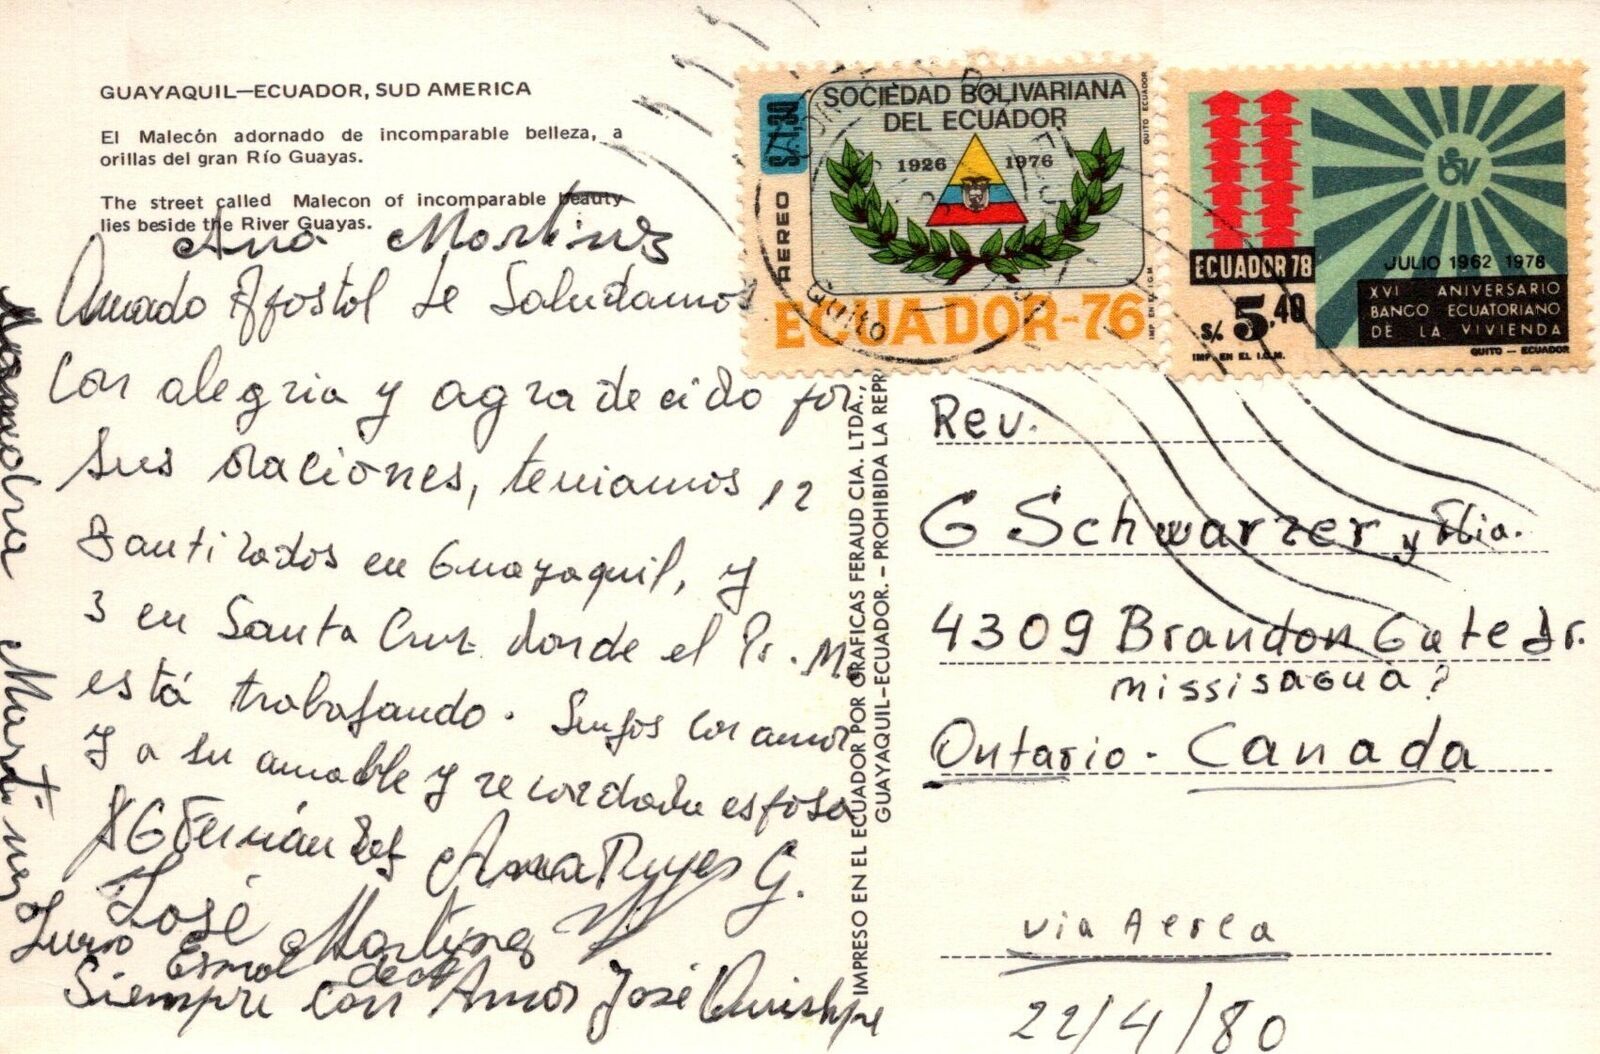 GUAYAQUIL—ECUADOR, SUD AMERICA
El Malecón adornado de incomparable belleza, a
orillas del gran Río Guayas.
The street called Malecon of incomparable beauty
lies beside the River Guayas.
Ana Martinez
Amado Apostol te Saludamos
Con alegria y agradecido por
sus oraciones, teniamos 12
Bautizados en Guayaquil, y
3 en Santa Cruz donde el Pr. M.
está trabajando. Suyos con amor
y a su amable y recordada esposa
G Fernández Ana Reyes G.
José Martinez
Siempre con Amor José Quishpe
Martinez
S/. 1,30
AEREO
SOCIEDAD BOLIVARIANA
DEL ECUADOR
1926 1976
ECUADOR-76
QUITO ECUADOR
IMP. EN EL I.G.M.
Quito
ECUADOR 78
S/. 5,40
IMP. EN EL I.G.M.
JULIO 1962 1978
XVI ANIVERSARIO
BANCO ECUATORIANO
DE LA VIVIENDA
QUITO — ECUADOR
IMPRESO EN EL ECUADOR POR GRAFICAS FERAUD CIA. LTDA.,
GUAYAQUIL-ECUADOR. – PROHIBIDA LA REPR
Rev.
G Schwarzer y Flia.
4309 Brandon Gate Dr.
Missisagua?
Ontario - Canada
via Aerea
22/4/80